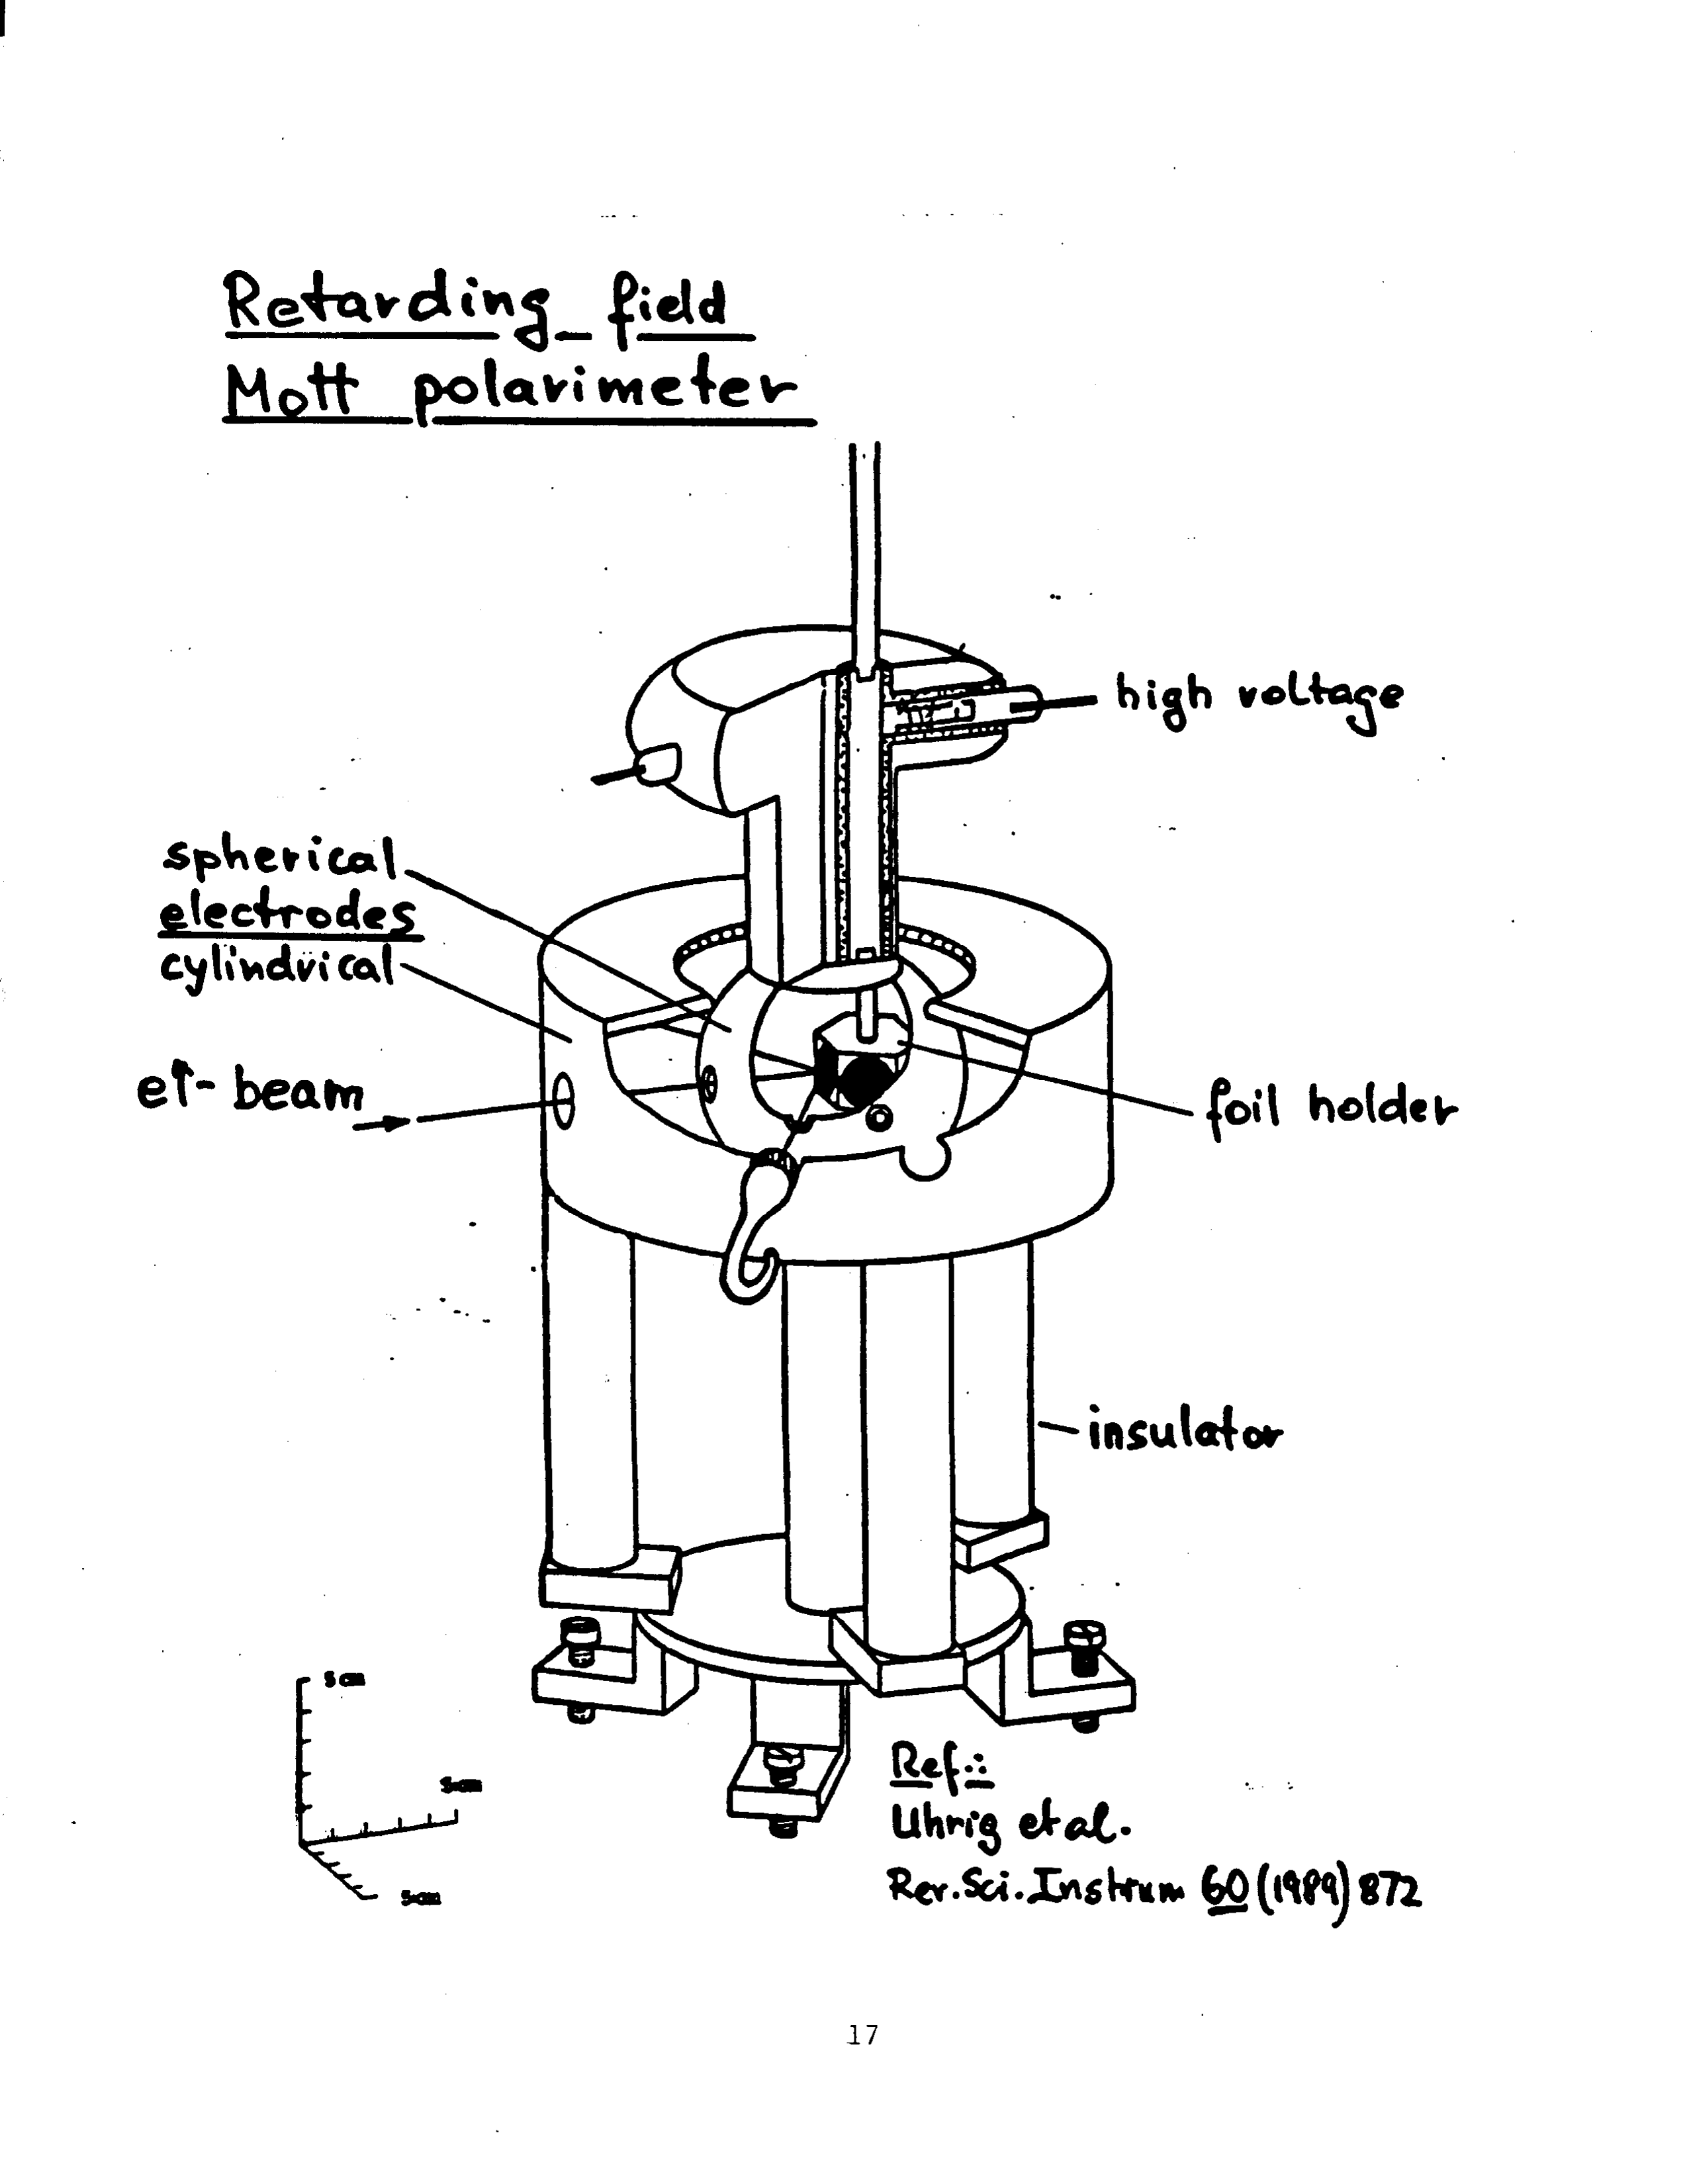 Retarding field
Mott polarimeter
high voltage
spherical
electrodes
cylindrical
e↑- beam
foil holder
insulator
5 cm
5 cm
5 cm
Ref.:
Uhrig et al.
Rev. Sci. Instrum 60 (1989) 872
17